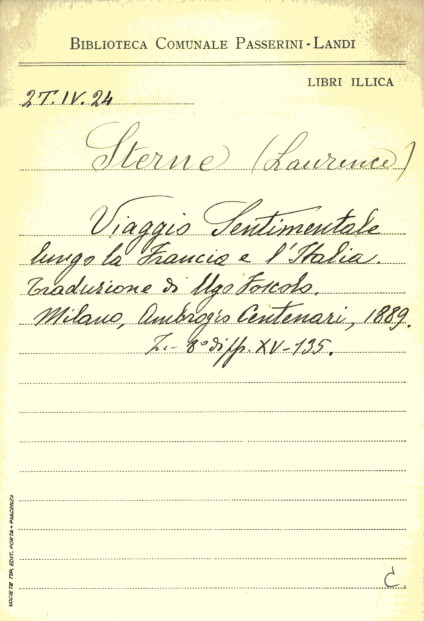 BIBLIOTECA COMUNALE PASSERINI-LANDI
LIBRI ILLICA
2T.IV.24
Sterne (Laurence)
Viaggio Sentimentale
lungo la Francia e l'Italia.
Traduzione di Ugo Foscolo.
Milano, Ambrogio Centenari, 1889.
8º di pp. XV-135.
SOCIETÀ TIP. EDIT. PORTA - PIACENZA
C